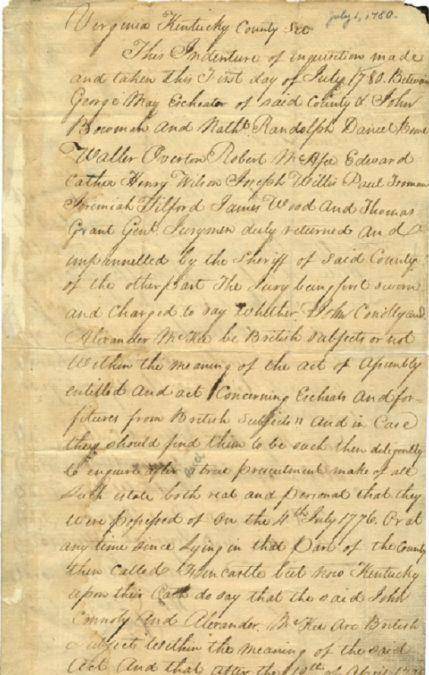 july 1, 1780.
Virginia Kentucky County Sct
This Indenture of inquisition made
and taken this First day of July 1780. Between
George May Escheator of said County & John
Bowman And Nathl. Randolph Daniel Boone
Walter Overton Robert McAfee Edward
Cather Henry Wilson Joseph Willis Paul Froman
Jeremiah Tilford James Wood And Thomas
Grant Gent. Jurymen duly returned And
impannelled by the Sheriff of said County
of the other part The Jury being first sworn
and Charged to say Whether John Conolly and
Alexander McKee be British subjects or not
Within the meaning of the act of Assembly
entitled And act Concerning Escheats And for-
fitures from British Subjects" And in Case
they should find them to be such then diligently
to enquire after & true presentment make of all
Such estate both real and personal that they
Were possessed of On the 4th July 1776. Or at
any time since Lying in that Part of the County
then called Fincastle but now Kentucky
upon their Oath do say that the said John
Connoly And Alexander McKee Are British
Subjects Within the meaning of the said
Act And that after the of April